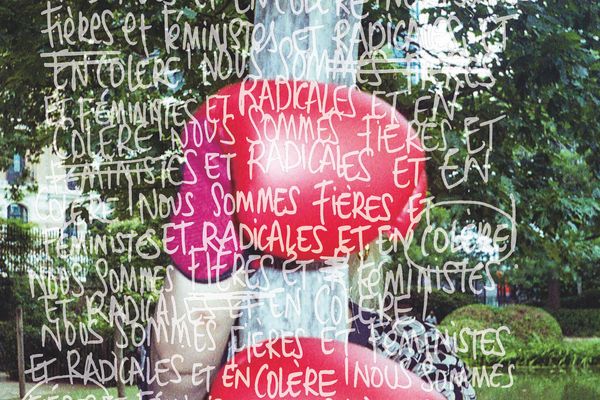 EN COLÈRE NOUS SOMMES
FIÈRES et FÉMINISTES ET RADICALES ET
EN COLÈRE NOUS SOMMES FIÈRES
ET FÉMINISTES ET RADICALES ET EN
COLÈRE NOUS SOMMES FIÈRES ET
FÉMINISTES ET RADICALES ET EN
COLÈRE NOUS SOMMES FIÈRES et
FÉMINISTES ET RADICALES ET EN COLÈRE
NOUS SOMMES FIÈRES ET FÉMINISTES
ET RADICALES ET EN COLÈRE !
NOUS SOMMES FIÈRES ET FÉMINISTES
ET RADICALES ET EN COLÈRE ! NOUS SOMMES